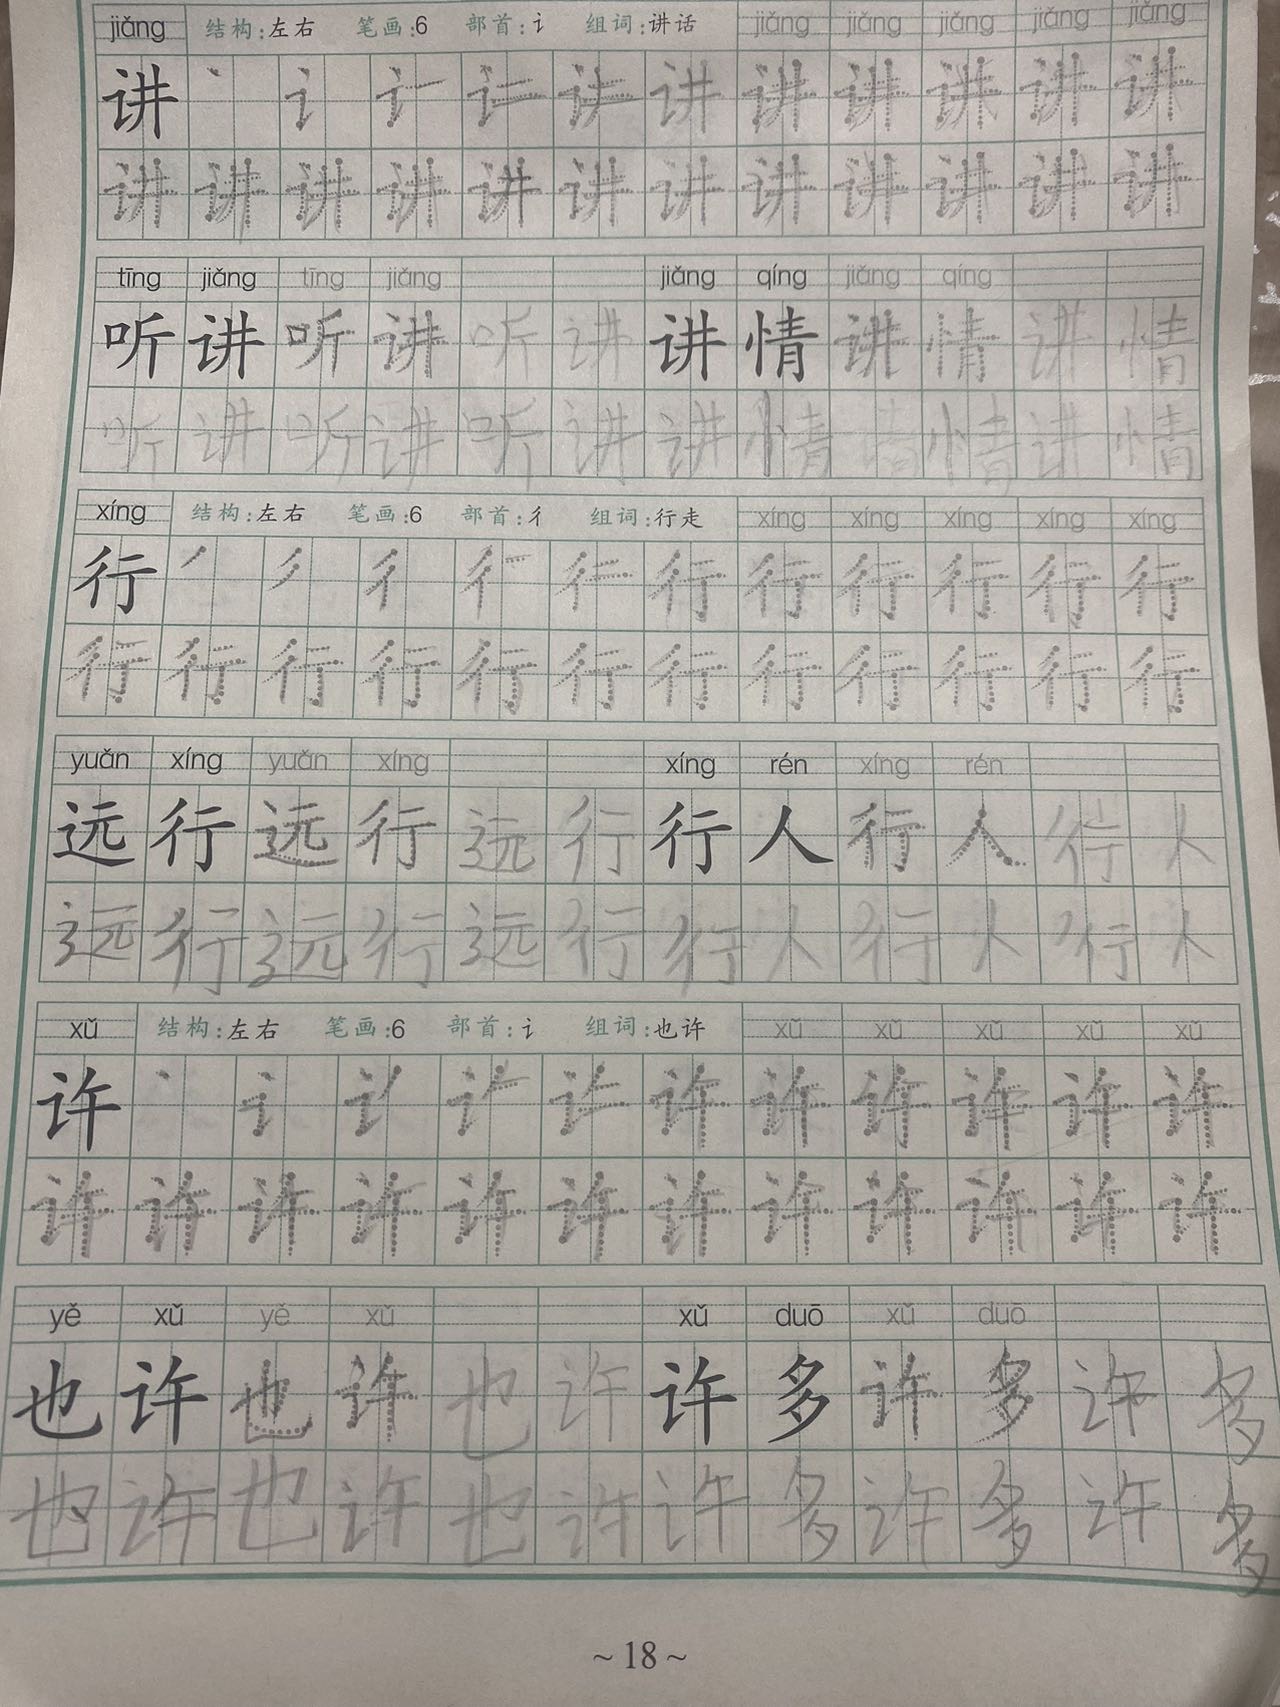 jiǎng 结构:左右 笔画:6 部首:讠 组词:讲话 jiǎng jiǎng jiǎng jiǎng jiǎng
讲 丶 讠 讲 讲 讲 讲 讲 讲
讲 讲 讲 讲 讲 讲 讲 讲 讲 讲 讲 讲
tīng jiǎng tīng jiǎng jiǎng qíng jiǎng qíng
听 讲 听 讲 听 讲 讲 情 讲 情 讲 情
听 讲 听 讲 听 讲 讲 情 讲 情 讲 情
xíng 结构:左右 笔画:6 部首:彳 组词:行走 xíng xíng xíng xíng xíng
行 丿 彳 行 行 行 行 行 行
行 行 行 行 行 行 行 行 行 行 行 行
yuǎn xíng yuǎn xíng xíng rén xíng rén
远 行 远 行 远 行 行 人 行 人 行 人
远 行 远 行 远 行 行 人 行 人 行 人
xǔ 结构:左右 笔画:6 部首:讠 组词:也许 xǔ xǔ xǔ xǔ xǔ
许 丶 讠 许 许 许 许 许 许
许 许 许 许 许 许 许 许 许 许 许 许
yě xǔ yě xǔ xǔ duō xǔ duō
也 许 也 许 也 许 许 多 许 多 许 多
也 许 也 许 也 许 许 多 许 多 许 多
~18~